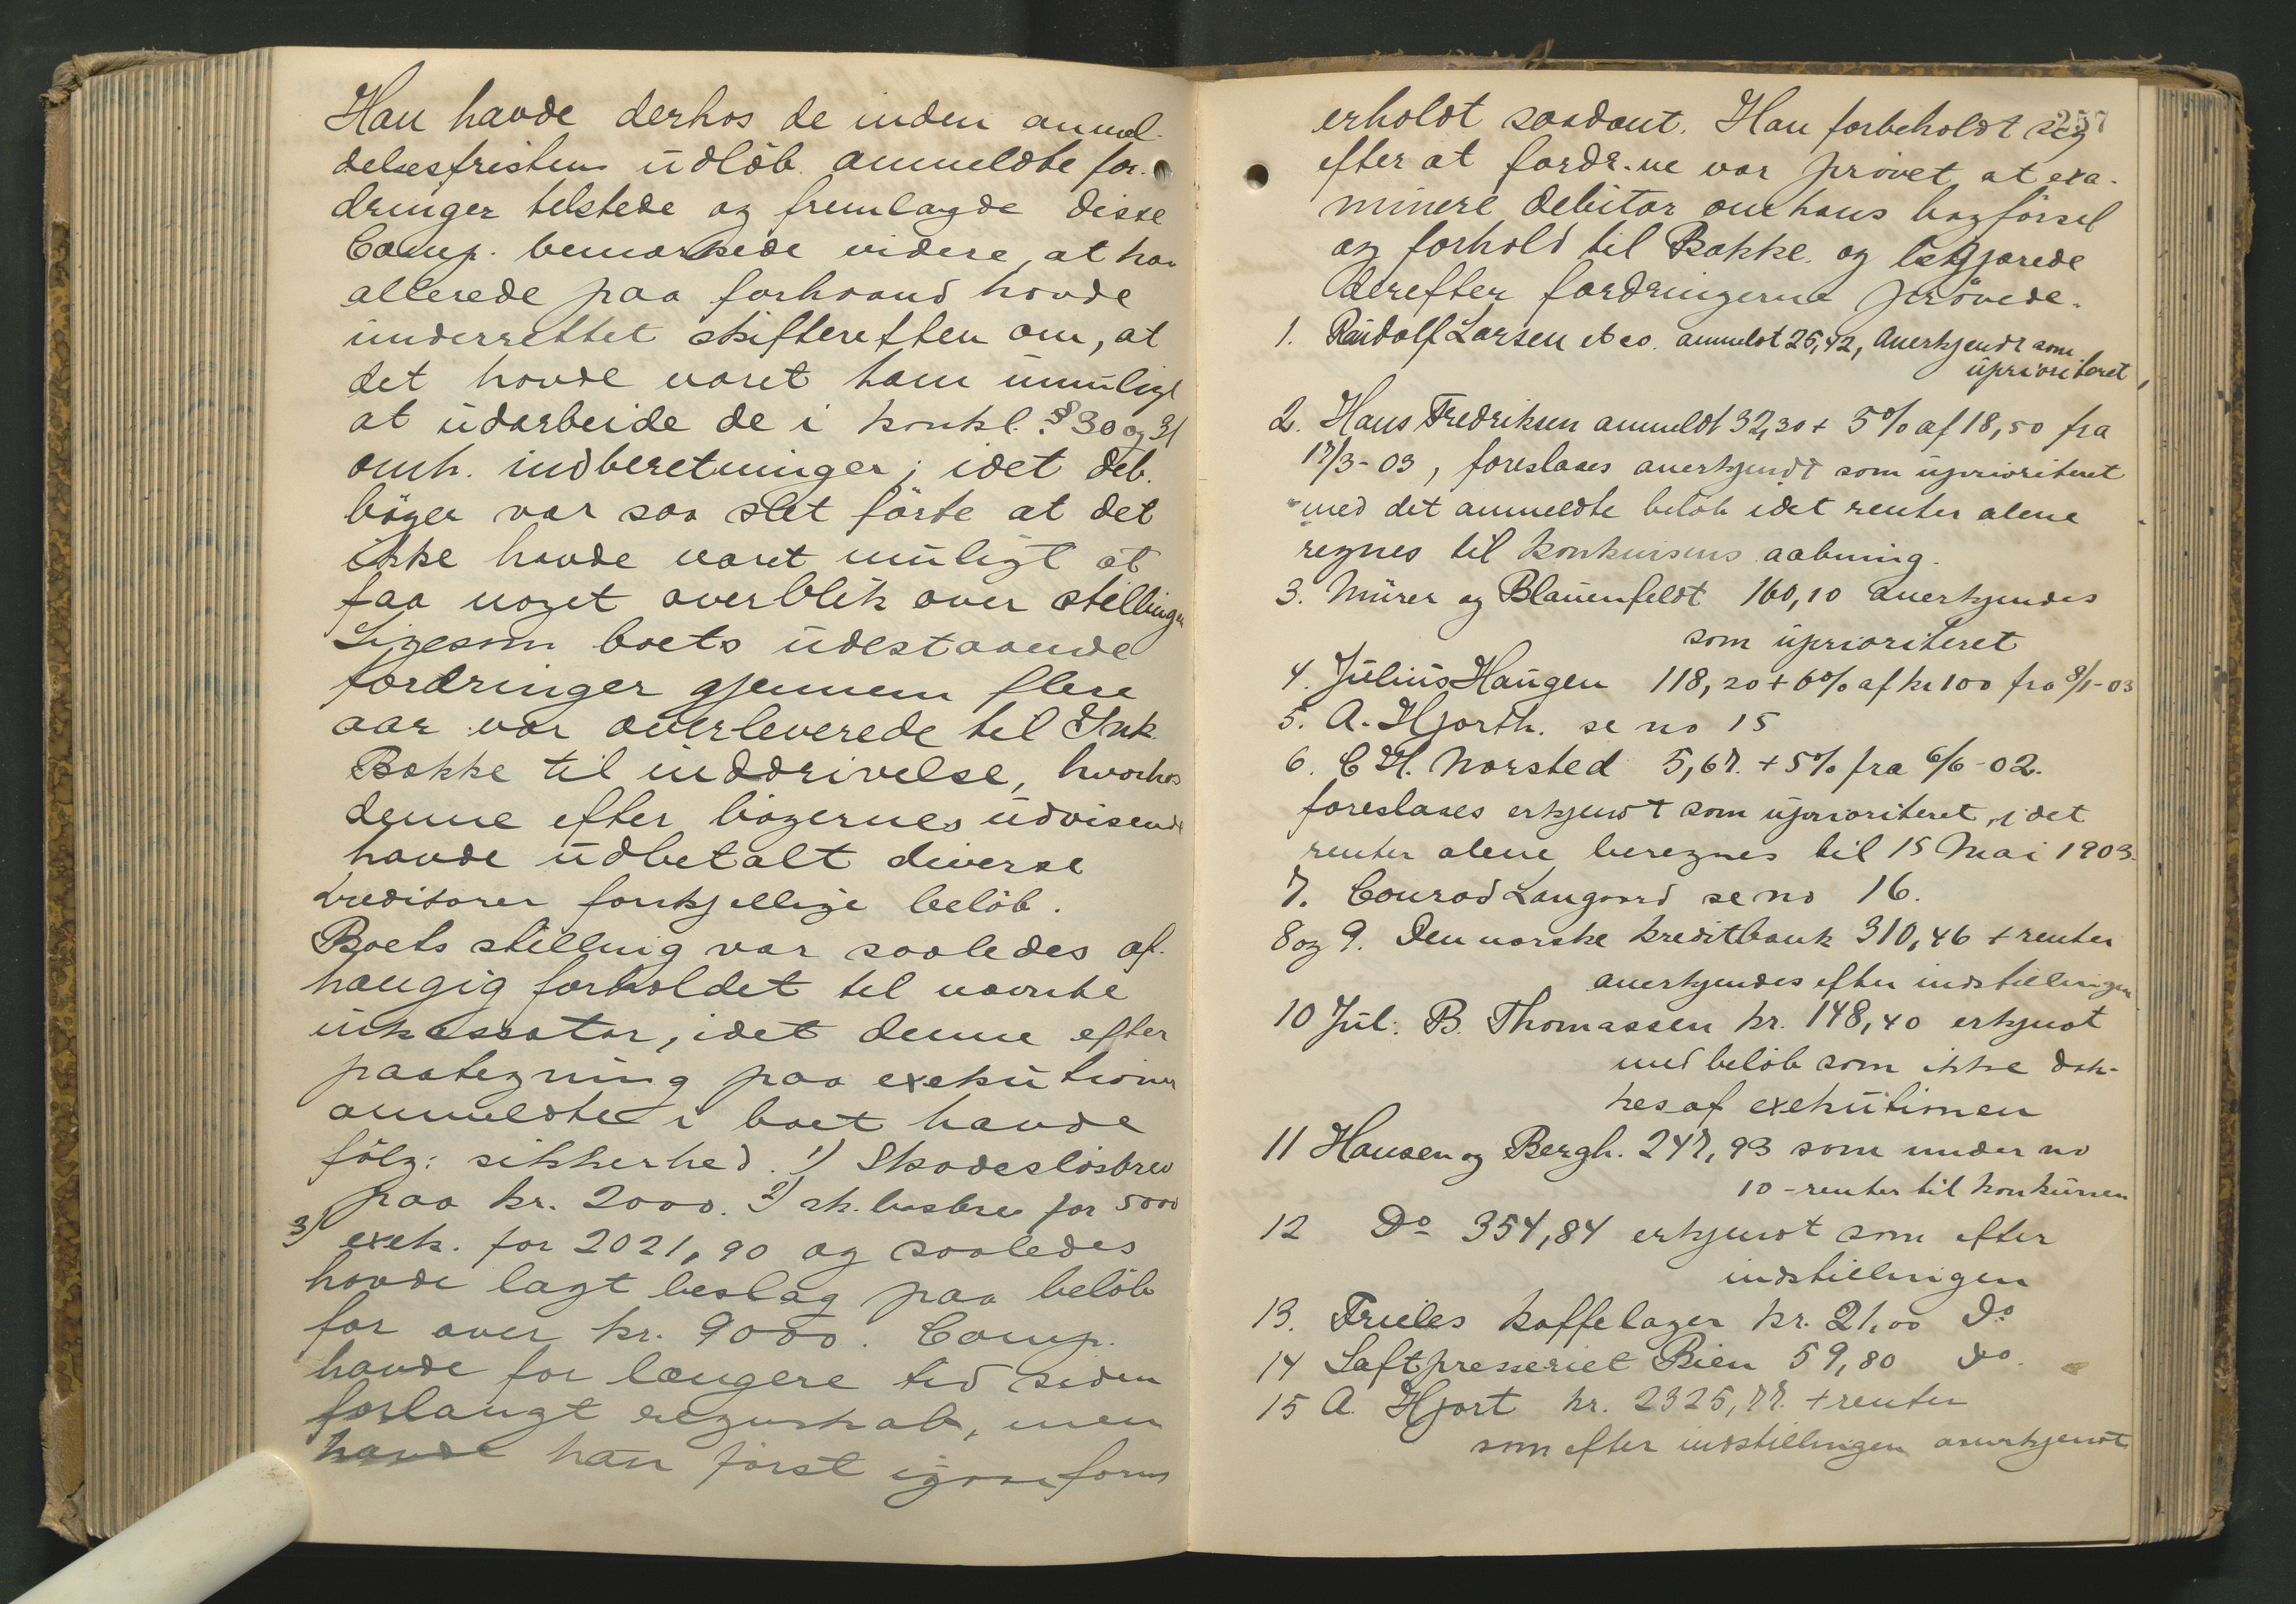 Han havde derhos de inden anmel-
delsesfristens udløb anmeldte for-
dringer tilstede og fremlagde disse
Comp. bemærkede videre, at han
allerede paa forhaand havde
underrettet skifteretten om, at
det havde været ham umuligt
at udarbeide de i konkl. § 30 og 31
omh. indberetninger; idet deb.
bøger var saa slet førte at det
ikke havde været muligt at
faa noget overblik over stillingen
Ligesom boets udestaaende
fordringer gjennem flere
aar var overleverede til Ink.
Bakke til inddrivelse, hvorhos
denne efter bøgernes udvisende
havde udbetalt diverse
kreditorer forskjellige beløb.
Boets stilling var saaledes af-
hængig forholdet til nævnte
inkassator, idet denne efter
paategning paa exekutioner
anmeldte i boet havde
følg: sikkerhed. 1) Skadesløsbrev
paa kr. 2000. 2) sk. løsbrev for 5000
3) exek. for 2021,90 og saaledes
havde lagt beslag paa beløb
for over kr. 9000. Comp.
havde for længere tid siden
forlangt regnskab, men
havde han først igaar form
257
erholdt saadant. Han forbeholdt sig
efter at fordr.ne var prøvet at exa-
minere debitor om hans bogførsel
og forhold til Bakke og begjærede
derefter fordringerne prøvede.
1. Randolf Larsen et co. anmeldt 25,42, Anerkjendt som
uprioriteret
2. Hans Fredriksen anmeldt 32,30 + 5% af 18,50 fra
17/3-03, foreslaaes anerkjendt som uprioriteret
med det anmeldte beløb idet renter alene
regnes til konkursens aabning.
3. Mürer og Blauenfeldt 160,10 anerkjendes
som uprioriteret
4. Julius Haugen 118,20 + 6% af kr 100 fra 8/1-03
5. A. Hjorth. se no 15
6. C H. Norsted 5,67. + 5% fra 6/6-02.
foreslaaes erkjendt som uprioriteret, idet
renter alene beregnes til 15 Mai 1903.
7. Conrad Langaard se no 16.
8 og 9. Den norske kreditbank 310,46 + renter
anerkjendes efter indstillingen
10 Jul. B. Thomassen kr. 148,40 erkjendt
med beløb som ikke dæk-
kes af exekutionen
11 Hansen og Bergh. 247,93 som under no
10 - renter til konkursen
12 Do 354,84 erkjendt som efter
indstillingen
13. Frieles kaffelager kr. 21,00 Do
14 Saftpresseriet Bien 59,80 do.
15 A. Hjort kr. 2325,77. + renter
som efter indstillingen anerkjendt